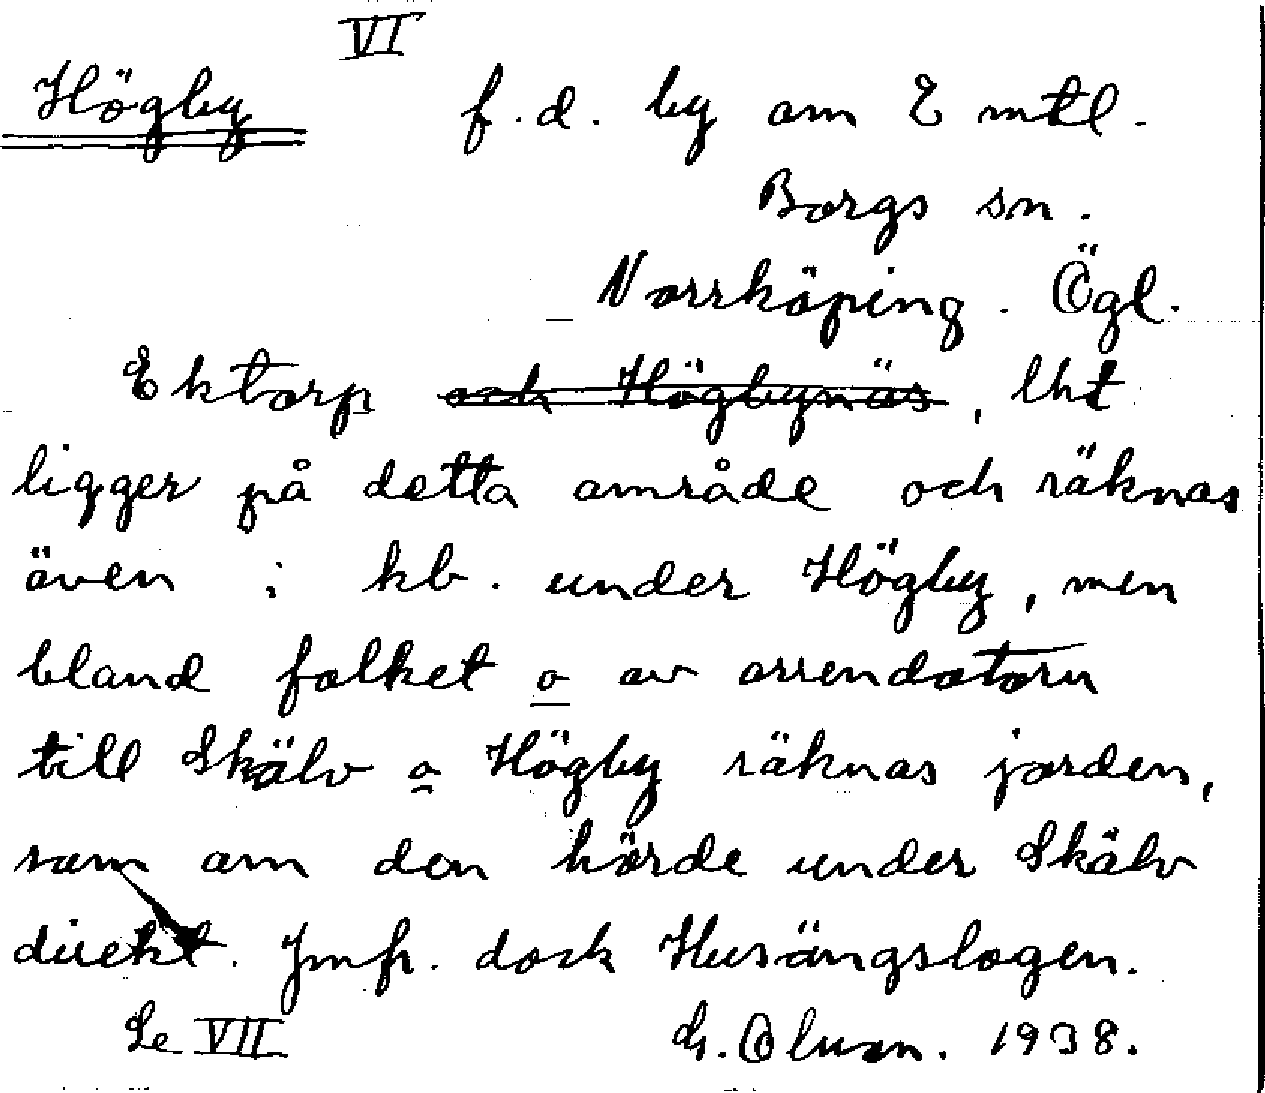 VI
Högby f.d. by om 2 mtl.
Borgs sn.
Norrköping. Ögl.
Ektorp och Högbynäs, lht
ligger på detta område och räknas
även i kb. under Högby, men
bland folket o av arrendatorn
till Skälv o Högby räknas jorden,
som om den hörde under Skälv
direkt. Jmfr. dock Husängslogen.
Se VII G. Olsson. 1938.